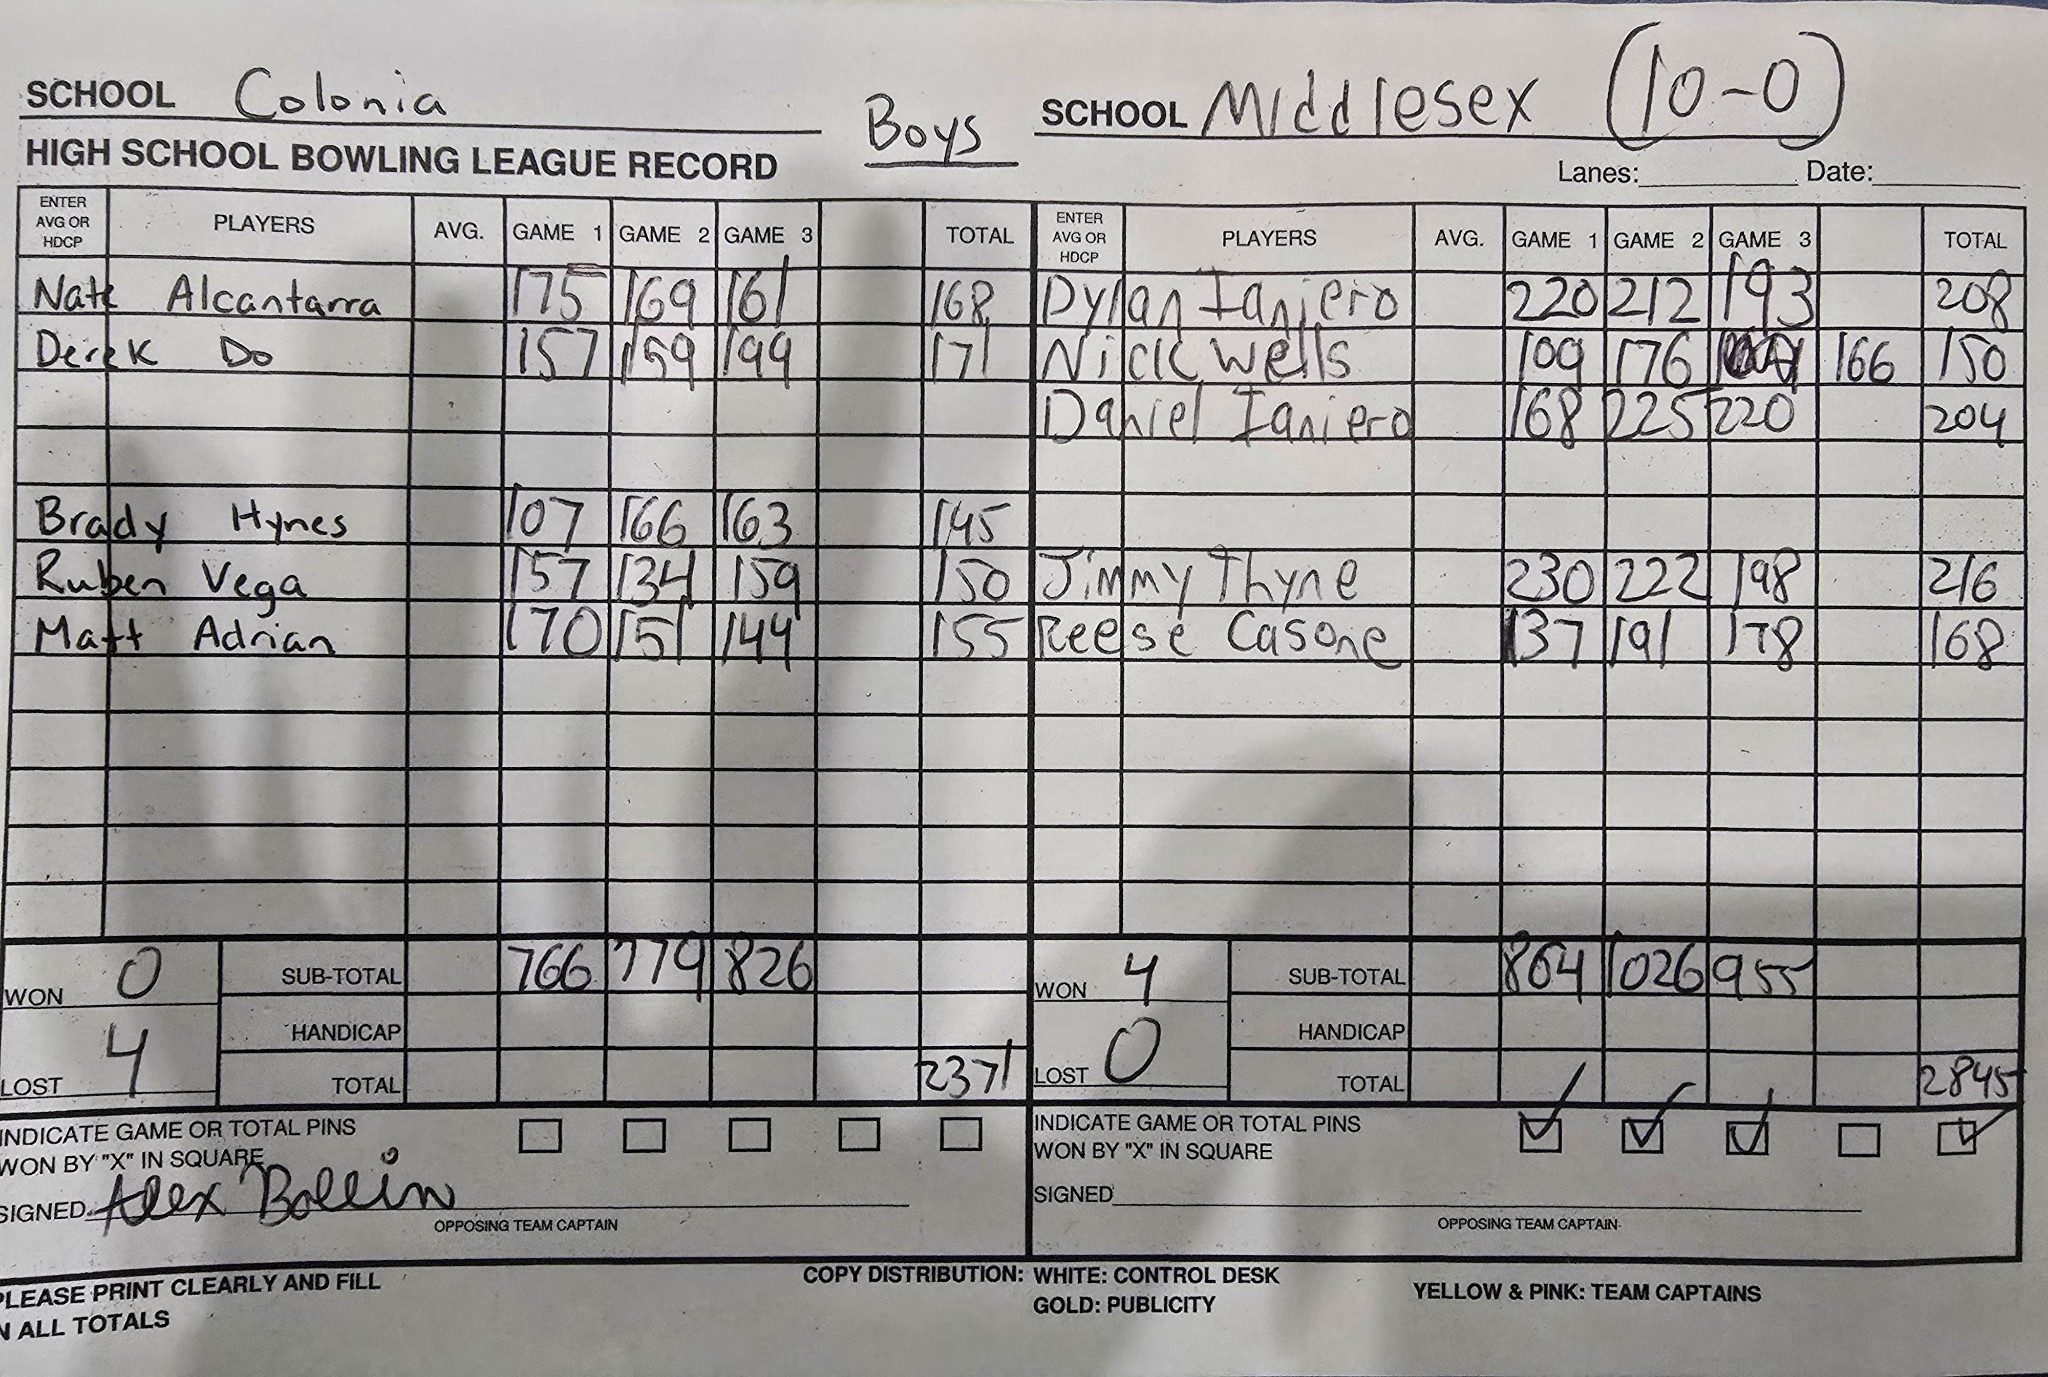 SCHOOL Colonia
Boys
SCHOOL Middlesex (10-0)
HIGH SCHOOL BOWLING LEAGUE RECORD
Lanes: Date:
ENTER AVG OR HDCP PLAYERS AVG. GAME 1 GAME 2 GAME 3 TOTAL ENTER AVG OR HDCP PLAYERS AVG. GAME 1 GAME 2 GAME 3 TOTAL
Nate Alcantarra 175 169 161 168 Dylan Ianiero 220 212 193 208
Derek Do 157 159 199 171 Nick Wells 109 176 166 150
Daniel Ianiero 168 225 220 204
Brady Hynes 107 166 163 145
Ruben Vega 157 134 159 150 Jimmy Thyne 230 222 198 216
Matt Adrian 170 151 144 155 Reese Casone 137 191 178 168
WON 0 SUB-TOTAL 766 779 826 WON 4 SUB-TOTAL 864 1026 955
HANDICAP HANDICAP
LOST 4 TOTAL 2371 LOST 0 TOTAL 2845
INDICATE GAME OR TOTAL PINS INDICATE GAME OR TOTAL PINS
WON BY "X" IN SQUARE WON BY "X" IN SQUARE
SIGNED Alex Bollin SIGNED
OPPOSING TEAM CAPTAIN OPPOSING TEAM CAPTAIN
PLEASE PRINT CLEARLY AND FILL COPY DISTRIBUTION: WHITE: CONTROL DESK YELLOW & PINK: TEAM CAPTAINS
IN ALL TOTALS GOLD: PUBLICITY